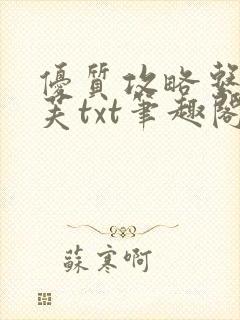 優質攻略整
芙txt筆趣閣
蘇寒啊